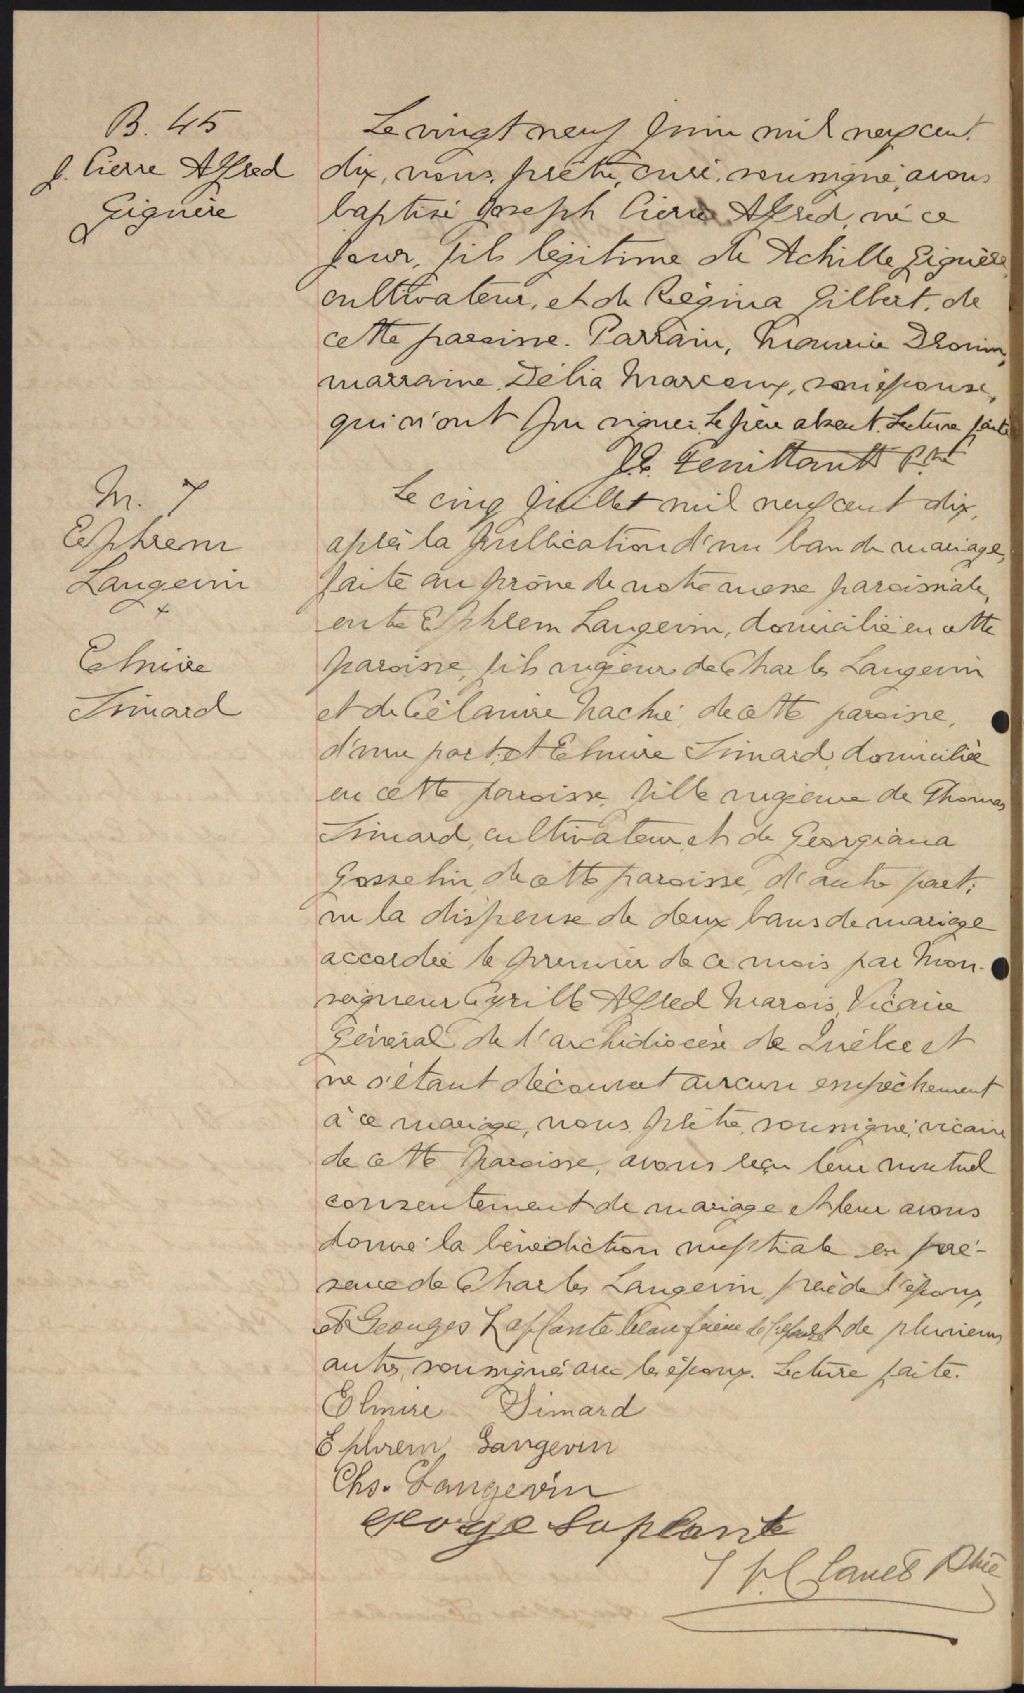 B. 45
J. Pierre Alfred
Giguère
Le vingt neuf Juin mil neuf cent
dix, nous, prêtre, curé, soussigné, avons
baptisé Joseph Pierre Alfred, né ce
jour, fils légitime de Achille Giguère,
cultivateur, et de Régina Gilbert, de
cette paroisse. Parrain, Maurice Drouin,
marraine, Délia Marcoux, son épouse,
qui n'ont pu signer. Le père absent. Lecture faite
J. E. Feuiltault Ptre
M. 7
Ephrem
Langevin
+
Elmire
Simard
Le cinq Juillet mil neuf cent dix,
après la publication d'un ban de mariage,
faite au prône de notre messe paroissiale,
entre Ephrem Langevin, domicilié en cette
paroisse, fils majeur de Charles Langevin
et de Célanire Maché, de cette paroisse,
d'une part, et Elmire Simard, domiciliée
en cette paroisse, fille majeure de Thomas
Simard, cultivateur, et de Georgiana
Gosselin, de cette paroisse, d'autre part;
vu la dispense de deux bans de mariage
accordée le premier de ce mois par Mon-
seigneur Cyrille Alfred Marois, Vicaire
Général de l'archidiocèse de Québec et
ne s'étant découvert aucun empêchement
à ce mariage, nous, prêtre, soussigné, vicaire
de cette paroisse, avons reçu leur mutuel
consentement de mariage et leur avons
donné la bénédiction nuptiale en pré-
sence de Charles Langevin, père de l'époux,
et Georges Laplante beau frère de l'épouse et de plusieurs
autres, soussignés avec les époux. Lecture faite.
Elmire Simard
Ephrem Langevin
Chs. Langevin
George Laplante
Ptre